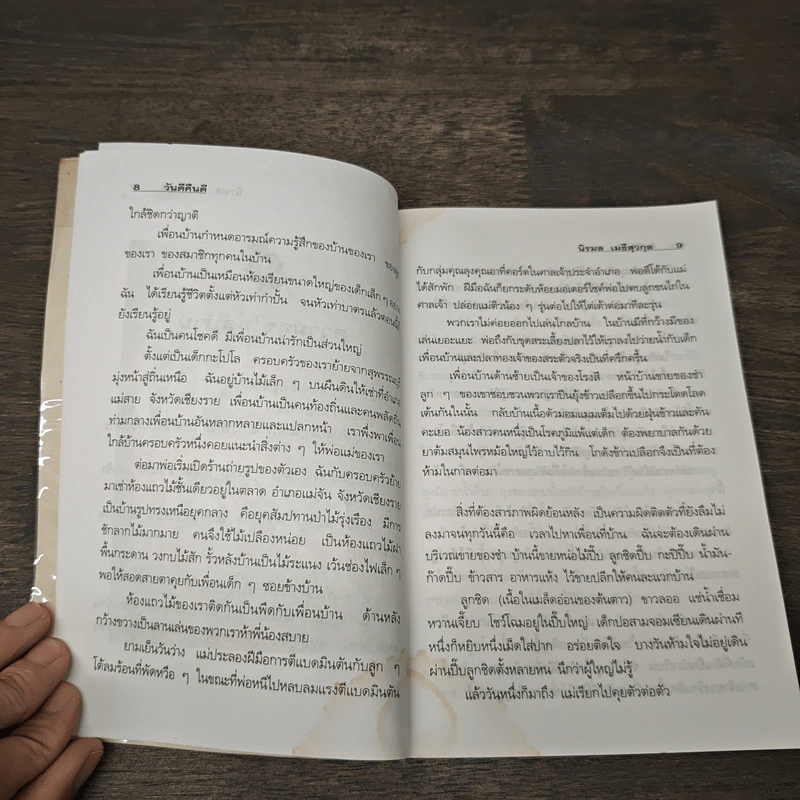 8 วันดีคืนดี
ใกล้ชิดกว่าญาติ
เพื่อนบ้านกำหนดอารมณ์ความรู้สึกของบ้านของเรา
ของเรา ของสมาชิกทุกคนในบ้าน
เพื่อนบ้านเป็นเหมือนห้องเรียนขนาดใหญ่ของเด็กเล็ก ๆ
ฉัน ได้เรียนรู้ชีวิตตั้งแต่หัวเท่ากำปั้น จนหัวเท่าบาตรแล้วตอนนี้
ยังเรียนรู้อยู่
ฉันเป็นคนโชคดี มีเพื่อนบ้านน่ารักเป็นส่วนใหญ่
ตั้งแต่เป็นเด็กกะโปโล ครอบครัวของเราย้ายจากสุพรรณบุรี
มุ่งหน้าสู่ถิ่นเหนือ ฉันอยู่บ้านไม้เล็ก ๆ บนผืนดินให้เช่าที่อำเภอ
แม่สาย จังหวัดเชียงราย เพื่อนบ้านเป็นคนท้องถิ่นและคนพลัดถิ่น
ท่ามกลางเพื่อนบ้านอันหลากหลายและแปลกหน้า เราพึ่งพาเพื่อน
ใกล้บ้านครอบครัวหนึ่งคอยแนะนำสิ่งต่าง ๆ ให้พ่อแม่ของเรา
ต่อมาพ่อเริ่มเปิดร้านถ่ายรูปของตัวเอง ฉันกับครอบครัวย้าย
มาเช่าห้องแถวไม้ชั้นเดียวอยู่ในตลาด อำเภอแม่จัน จังหวัดเชียงราย
เป็นบ้านรูปทรงเหนือยุคกลาง คือยุคสัมปทานป่าไม้รุ่งเรือง มีการ
ชักลากไม้มากมาย คนจึงใช้ไม้เปลืองหน่อย เป็นห้องแถวไม้ฝา
พื้นกระดาน วงกบไม้สัก รั้วหลังบ้านเป็นไม้ระแนง เว้นช่องไฟเล็ก ๆ
พอให้สอดสายตาคุยกับเพื่อนเด็ก ๆ ซอยข้างบ้าน
ห้องแถวไม้ของเราติดกันเป็นพืดกับเพื่อนบ้าน ด้านหลัง
กว้างขวางเป็นลานเล่นของพวกเราห้าพี่น้องสบาย
ยามเย็นวันว่าง แม่ประลองฝีมือการตีแบดมินตันกับลูก ๆ
ใต้ลมร้อนที่พัดหวือ ๆ ในขณะที่พ่อหนีไปหลบลมแรงตีแบดมินตัน
นิรมล เมธีสุวกุล 9
กับกลุ่มคุณลุงคุณอาที่คอร์ตในศาลเจ้าประจำอำเภอ พ่อตีโต้กับแม่
ได้สักพัก ฝีมือฉันก็ยกระดับห้อยมอเตอร์ไซค์พ่อไปตบลูกขนไก่ใน
ศาลเจ้า ปล่อยแม่ติวน้อง ๆ รุ่นต่อไปให้ไต่เต้าต่อมาทีละรุ่น
พวกเราไม่ค่อยออกไปเล่นไกลบ้าน ในบ้านมีที่กว้างมีของ
เล่นเยอะแยะ พ่อถึงกับขุดสระเลี้ยงปลาไว้ให้เราลงไปว่ายน้ำกับเด็ก
เพื่อนบ้านและปลาทองเจ้าของสระตัวจริงเป็นที่ครึกครื้น
เพื่อนบ้านด้านซ้ายเป็นเจ้าของโรงสี หน้าบ้านขายของชำ
ลูก ๆ ของเขาชอบชวนพวกเราปีนยุ้งข้าวเปลือกขึ้นไปกระโดดโลด
เต้นกันในนั้น กลับบ้านเนื้อตัวมอมแมมเต็มไปด้วยฝุ่นข้าวและคัน
คะเยอ น้องสาวคนหนึ่งเป็นโรคภูมิแพ้แต่เด็ก ต้องพยาบาลกันด้วย
ยาต้มสมุนไพรหม้อใหญ่ไว้อาบไว้กิน โกดังข้าวเปลือกจึงเป็นที่ต้อง
ห้ามในกาลต่อมา
สิ่งที่ต้องสารภาพผิดย้อนหลัง เป็นความผิดติดตัวที่ยังลืมไม่
ลงมาจนทุกวันนี้คือ เวลาไปหาเพื่อนที่บ้าน ฉันจะต้องเดินผ่าน
บริเวณขายของชำ บ้านนี้ขายหน่อไม้ปี๊บ ลูกชิดปี๊บ กะปิปี๊บ น้ำมัน-
ก๊าดปี๊บ ข้าวสาร อาหารแห้ง ไว้ขายปลีกให้คนละแวกบ้าน
ลูกชิด (เนื้อในเมล็ดอ่อนของต้นตาว) ขาวลออ แช่น้ำเชื่อม
หวานเจี๊ยบ โชว์โฉมอยู่ในปี๊บใหญ่ เด็กปอสามจอมเซียนเดินผ่านที
หนึ่งก็หยิบหนึ่งเม็ดใส่ปาก อร่อยติดใจ บางวันห้ามใจไม่อยู่เดิน
ผ่านปี๊บลูกชิดตั้งหลายหน นึกว่าผู้ใหญ่ไม่รู้
แล้ววันหนึ่งก็มาถึง แม่เรียกไปคุยตัวต่อตัว